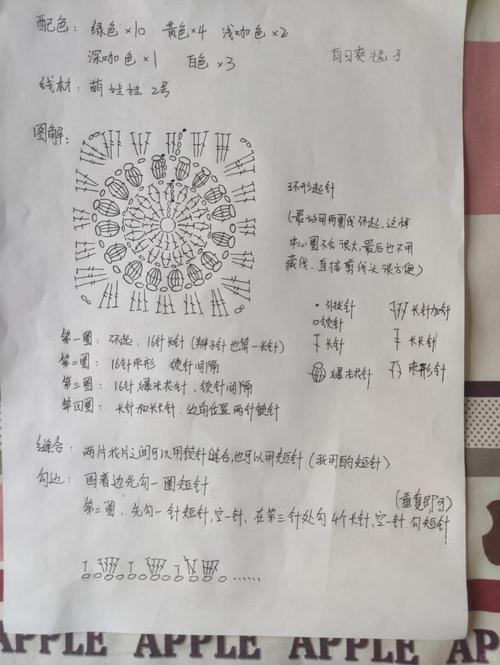 配色: 绿色×10 黄色×4 浅咖色×2
深咖色×1 白色×3
向日葵毯子
线材: 萌娃娃 2号
图解:
环形起针
(最好用两圈线环起,这样
中心圈不会很大,最后也不用
藏线,直接剪线头很方便)
引拔针 长针加针
锁针
长针 长长针
爆米花针 枣形针
第一圈: 环起, 16针长针 (辫子针也算一长针)
第二圈: 16针枣形 锁针间隔
第三圈: 16针爆米花针, 锁针间隔
第四圈: 长针和长长针, 边角位置两针锁针
缝合: 两片花片之间可以用锁针缝合,也可以用短针 (我用的短针)
勾边: 围着边先勾一圈短针
(重复即可)
第二圈, 先勾一针短针,空一针, 在第三针处勾4个长针,空一针,勾短针
APPLE APPLE APPLE APPLE